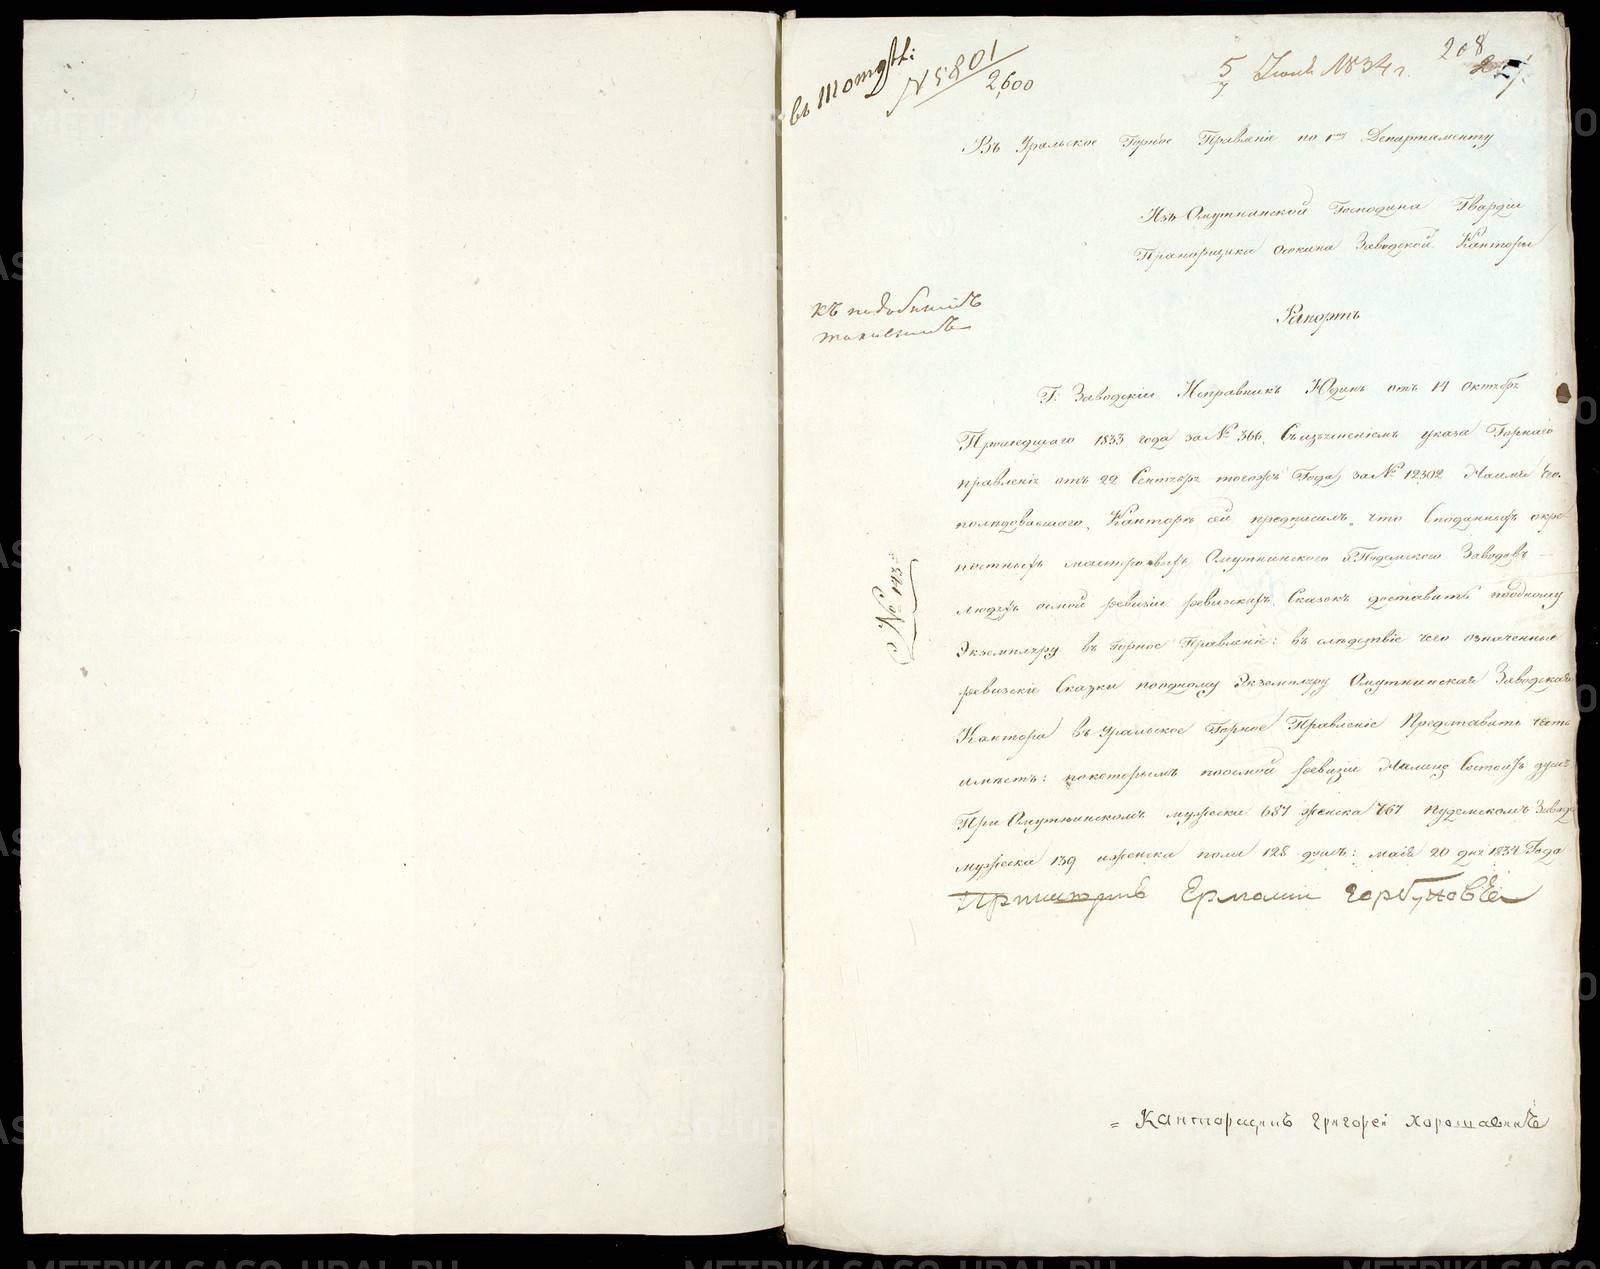 въ
№ 5801
2,600
5 Іюня 1834 г.
208
Въ Уральское Горное Правленіе по 1му Департаменту
Изъ Омутнинской Господина Гвардіи
Прапорщика Осокина Заводской Канторы
къ подобнымъ
Рапортъ
Г: Заводскій Исправникъ Юдинъ отъ 14 октября
Прошедшаго 1833 года за № 366, Съ изъясненіемъ указа Горнаго
правленія отъ 22 Сентября тогожъ Года за № 12302
Канторѣ сей предписалъ, что Споданныхъ о крѣ-
постныхъ мастеровыхъ Омутнинскаго и Пудемскаго Заводовъ
людяхъ осмой ревизіи ревизскихъ Сказокъ доставить поодному
№ 193
Экземпляру въ Горное Правленіе: въ слѣдствіе чего означенные
ревизскіе Сказки поодному Экземпляру Омутнинская Заводская
Кантора въ Уральское Горное Правленіе Представить честь
имѣетъ: покоторымъ поосмой ревизіи Налицо Состоитъ душъ
При Омутнинскомъ мужеска 687 женска 767 Пудемскомъ Заводе
мужеска 139 иженска пола 128 душъ: маія 20 дня 1834 Года
Ермолай Горбуновъ
Канторщикъ Григорей Хорошавинъ